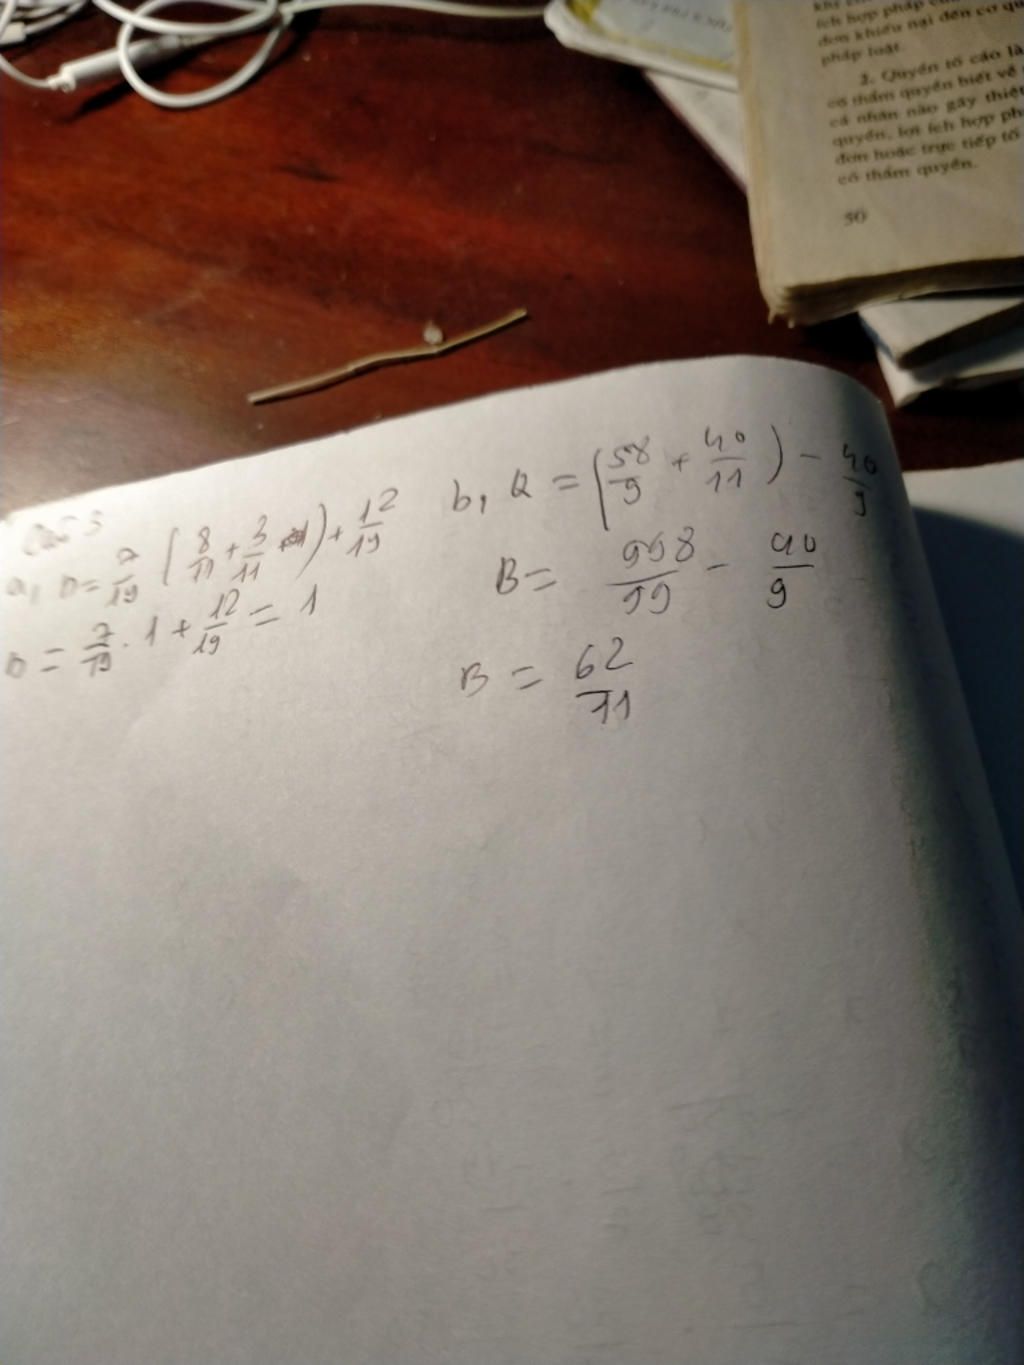 ích hợp pháp
đơn khiếu nại đến cơ qu
pháp luật.
2. Quyền tố cáo là
có thẩm quyền biết về
cá nhân nào gây thiệt
quyền, lợi ích hợp ph
đơn hoặc trực tiếp tố
có thẩm quyền.
50
a, = 7/19 (8/11 + 3/11) + 12/19
= 7/19 . 1 + 12/19 = 1
b, = (58/9 + 40/11) - 40/9
B = 998/99 - 40/9
B = 62/11